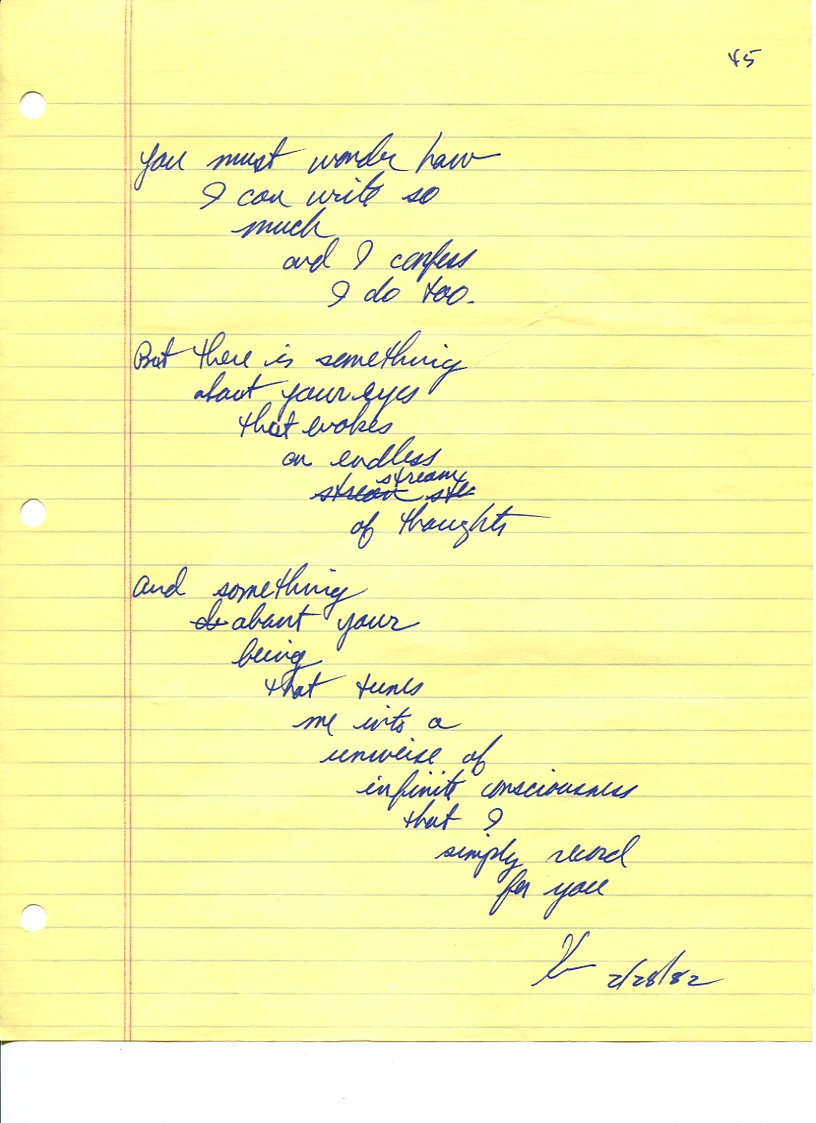 45
You must wonder how
I can write so
much
and I confess
I do too.
But there is something
about your eyes
that evokes
an endless
stream
stream ste
of thoughts
and something
do about your
being
that tunes
me into a
universe of
infinite consciousness
that I
simply record
for you
2/28/82